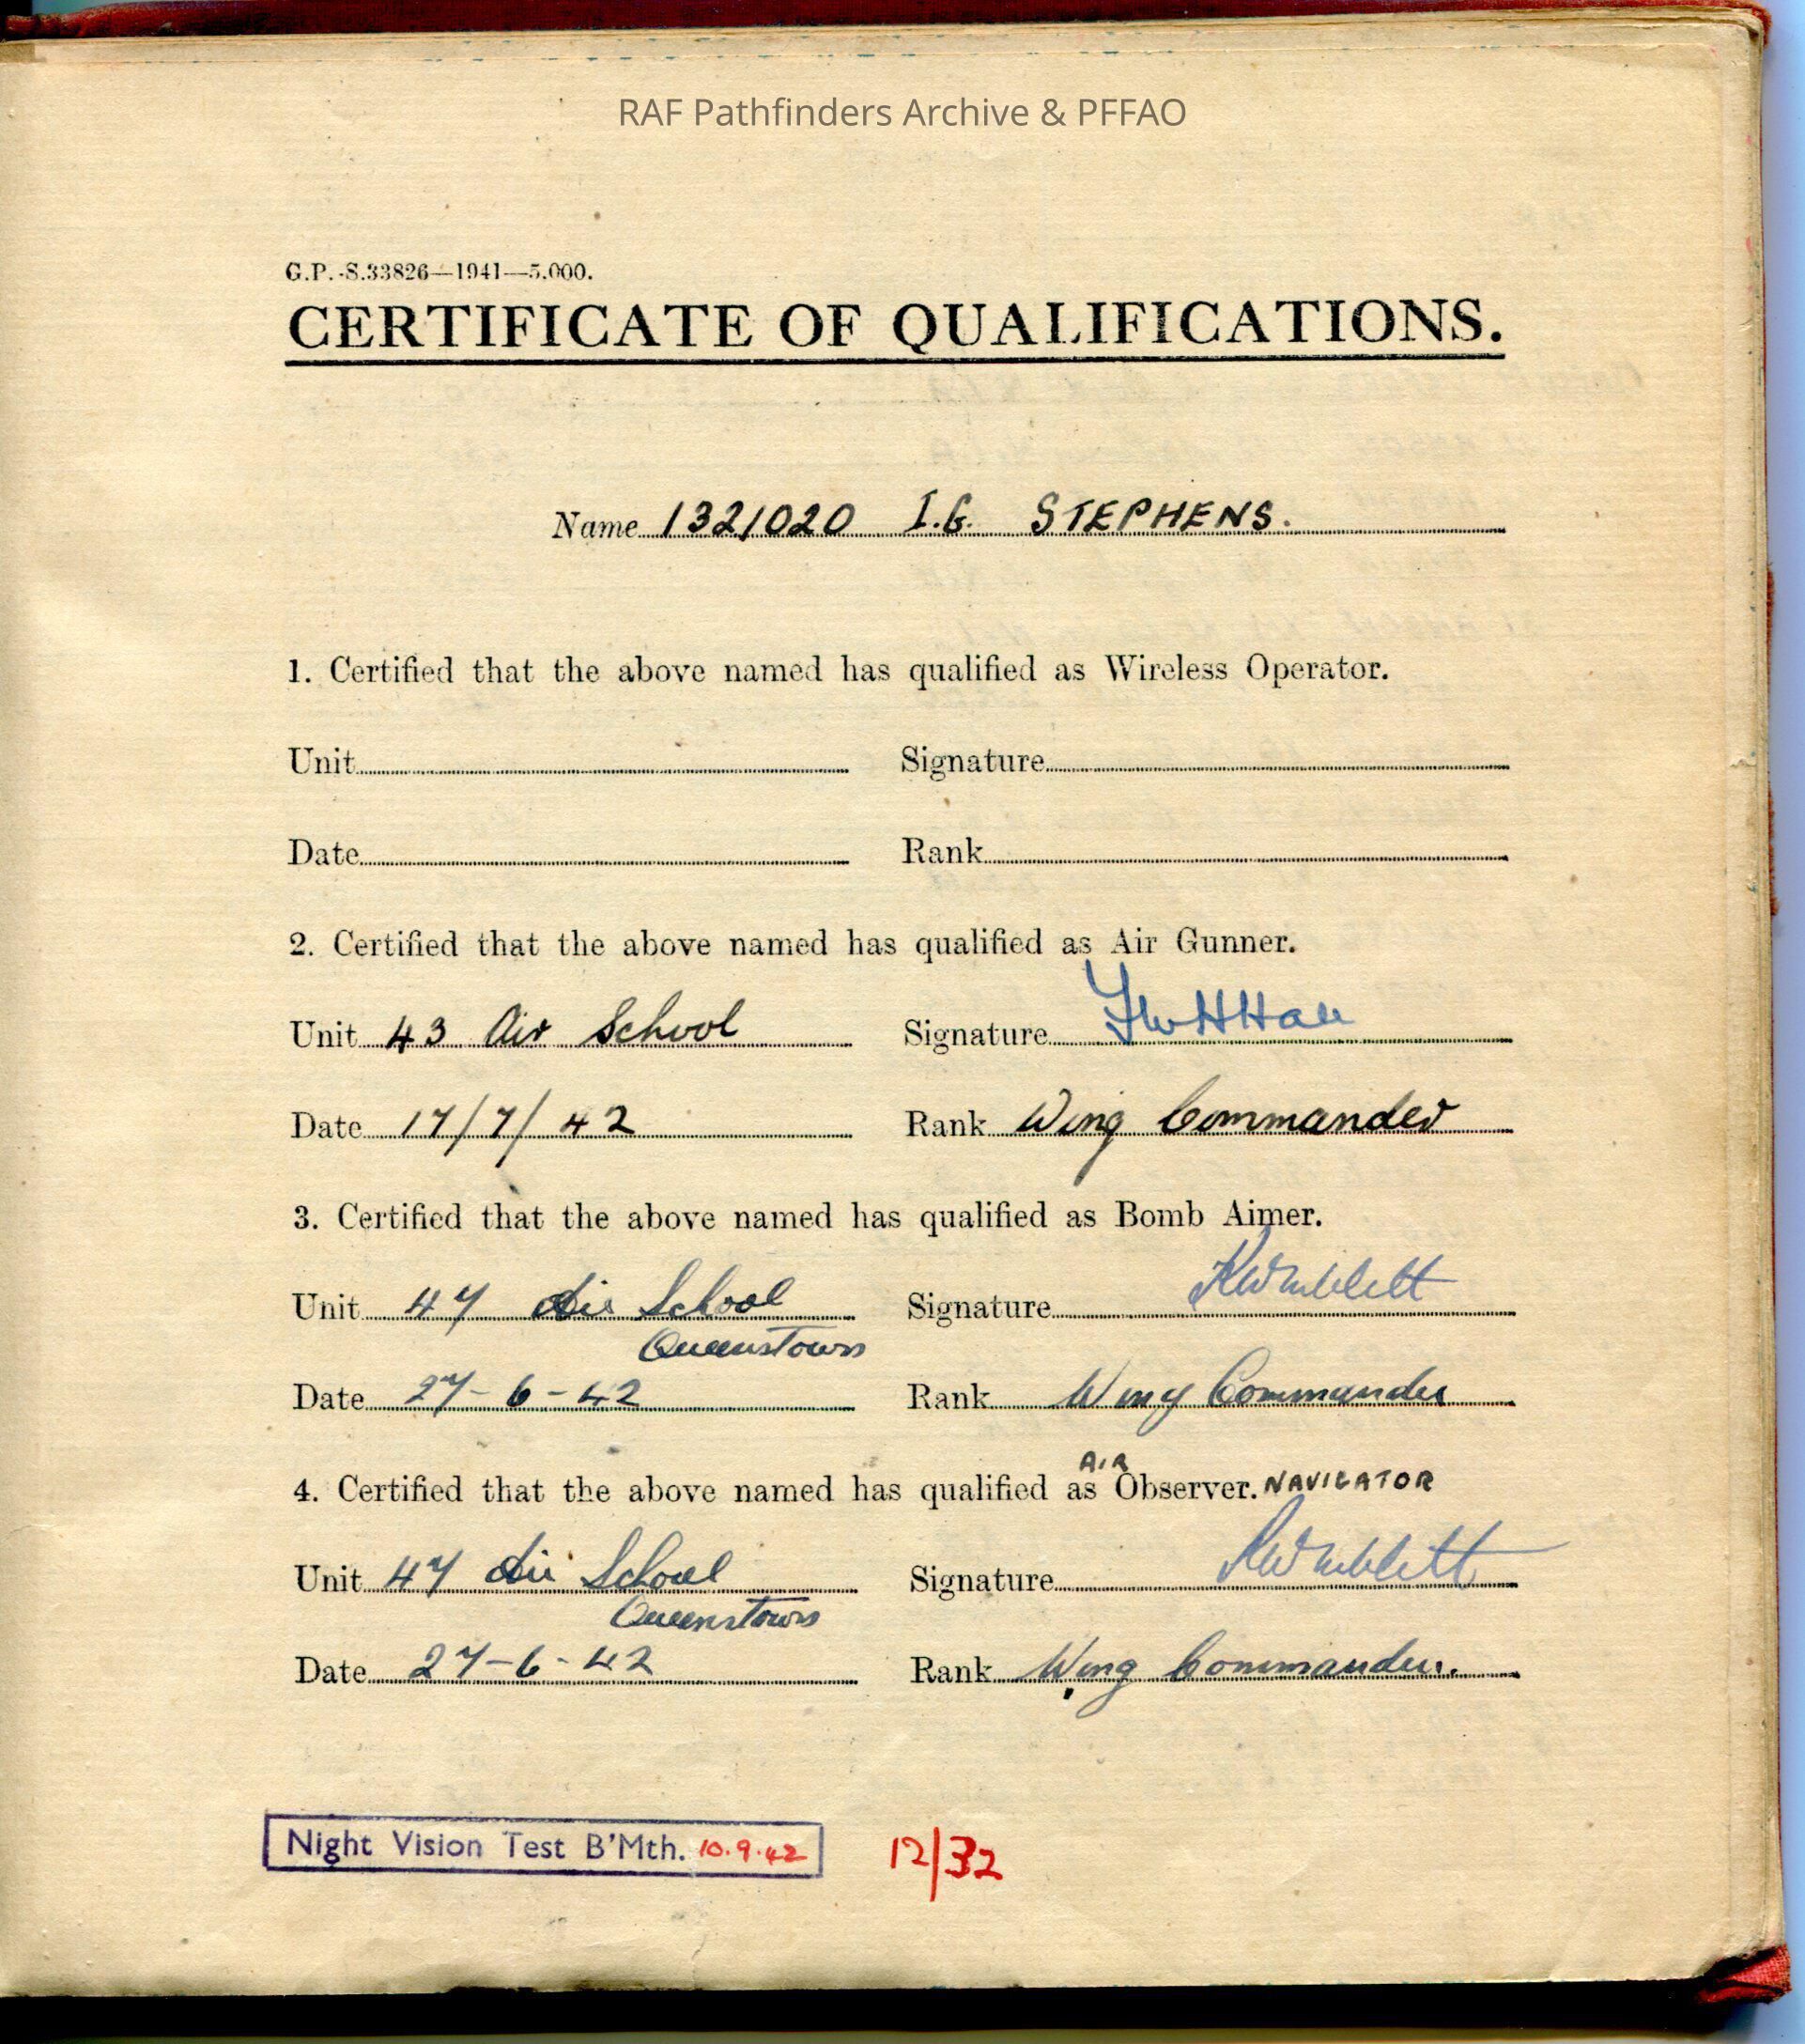 RAF Pathfinders Archive & PFFAO
G.P.-S.33826—1941—5,000.
CERTIFICATE OF QUALIFICATIONS.
Name 1321020 I.G. STEPHENS.
1. Certified that the above named has qualified as Wireless Operator.
Unit Signature
Date Rank
2. Certified that the above named has qualified as Air Gunner.
Unit 43 Air School Signature
Date 17/7/42 Rank Wing Commander
3. Certified that the above named has qualified as Bomb Aimer.
Unit 47 Air School Signature
Queenstown
Date 27-6-42 Rank Wing Commander
AIR
4. Certified that the above named has qualified as Observer. NAVIGATOR
Unit 47 Air School Signature
Queenstown
Date 27-6-42 Rank Wing Commander.
Night Vision Test B'Mth. 10.9.42 12/32